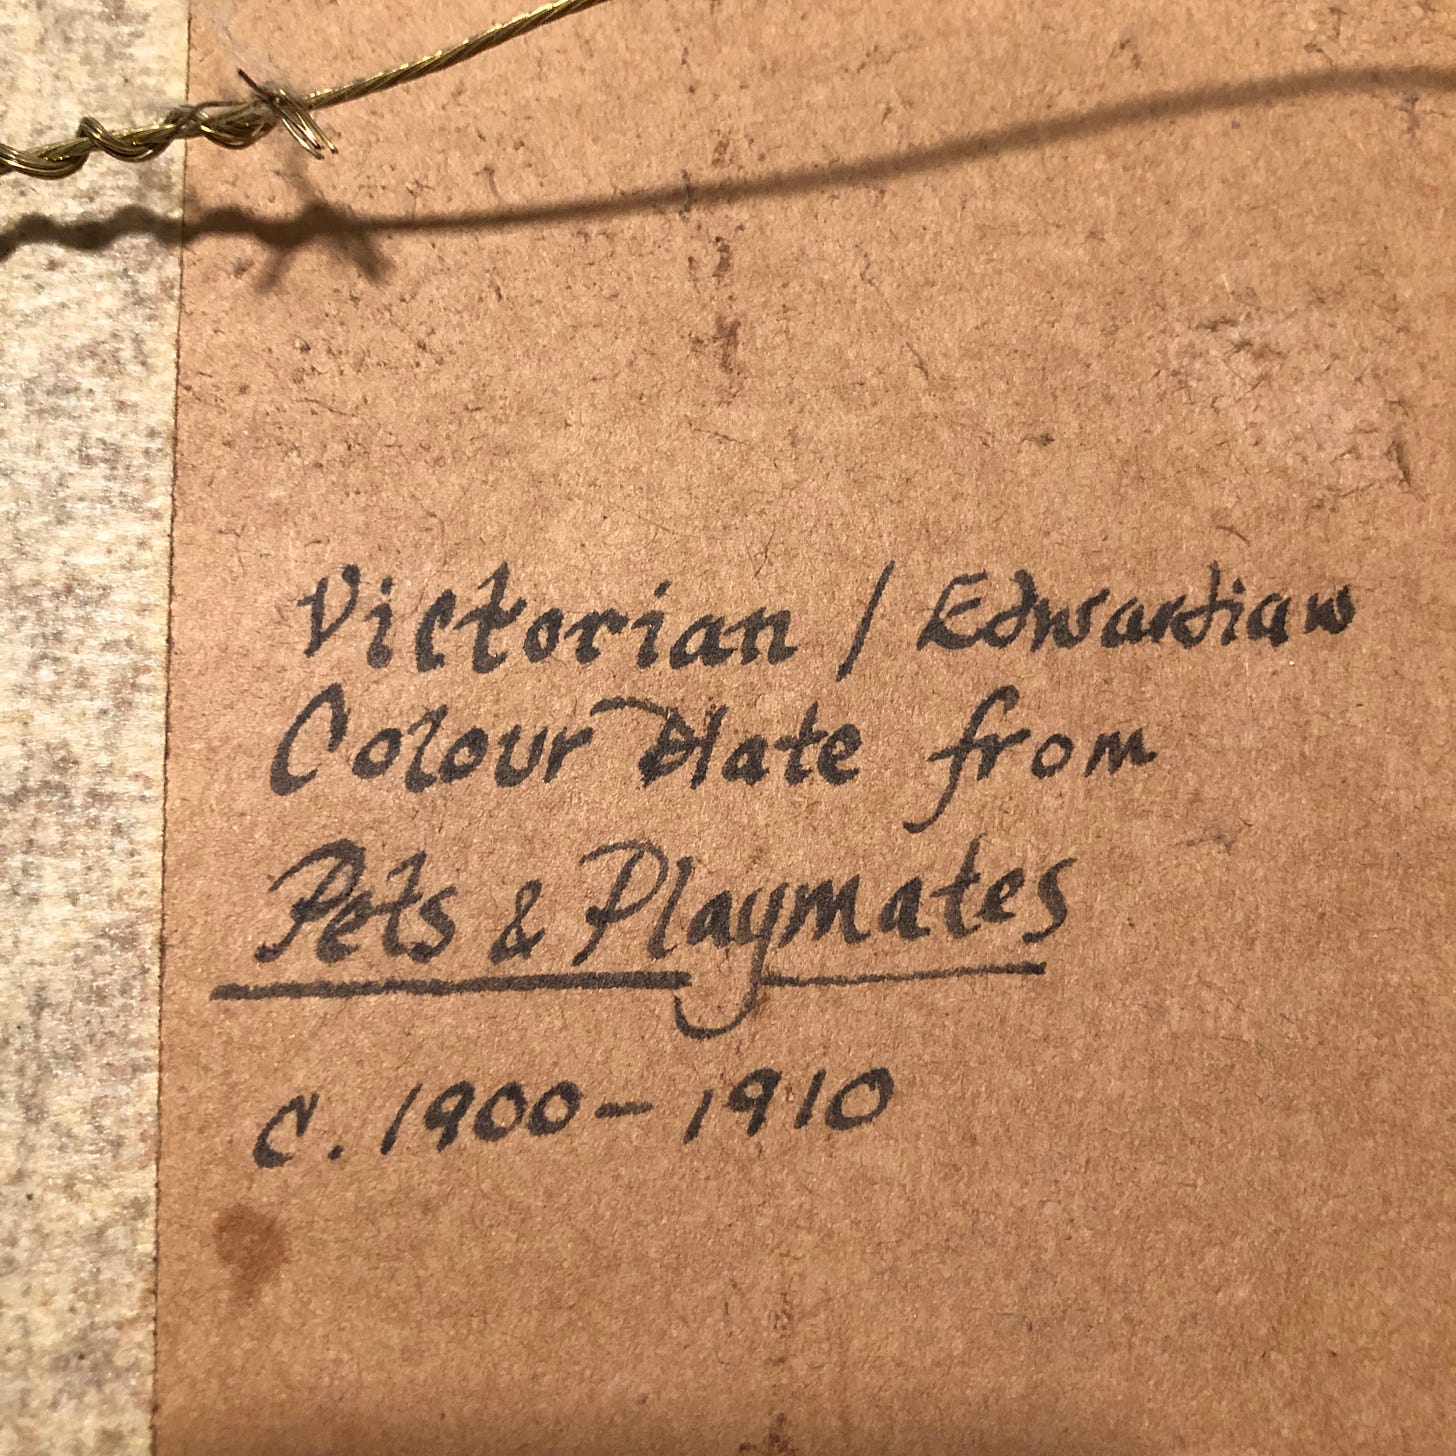 Victorian / Edwardian
Colour Plate from
Pets & Playmates
c. 1900 – 1910